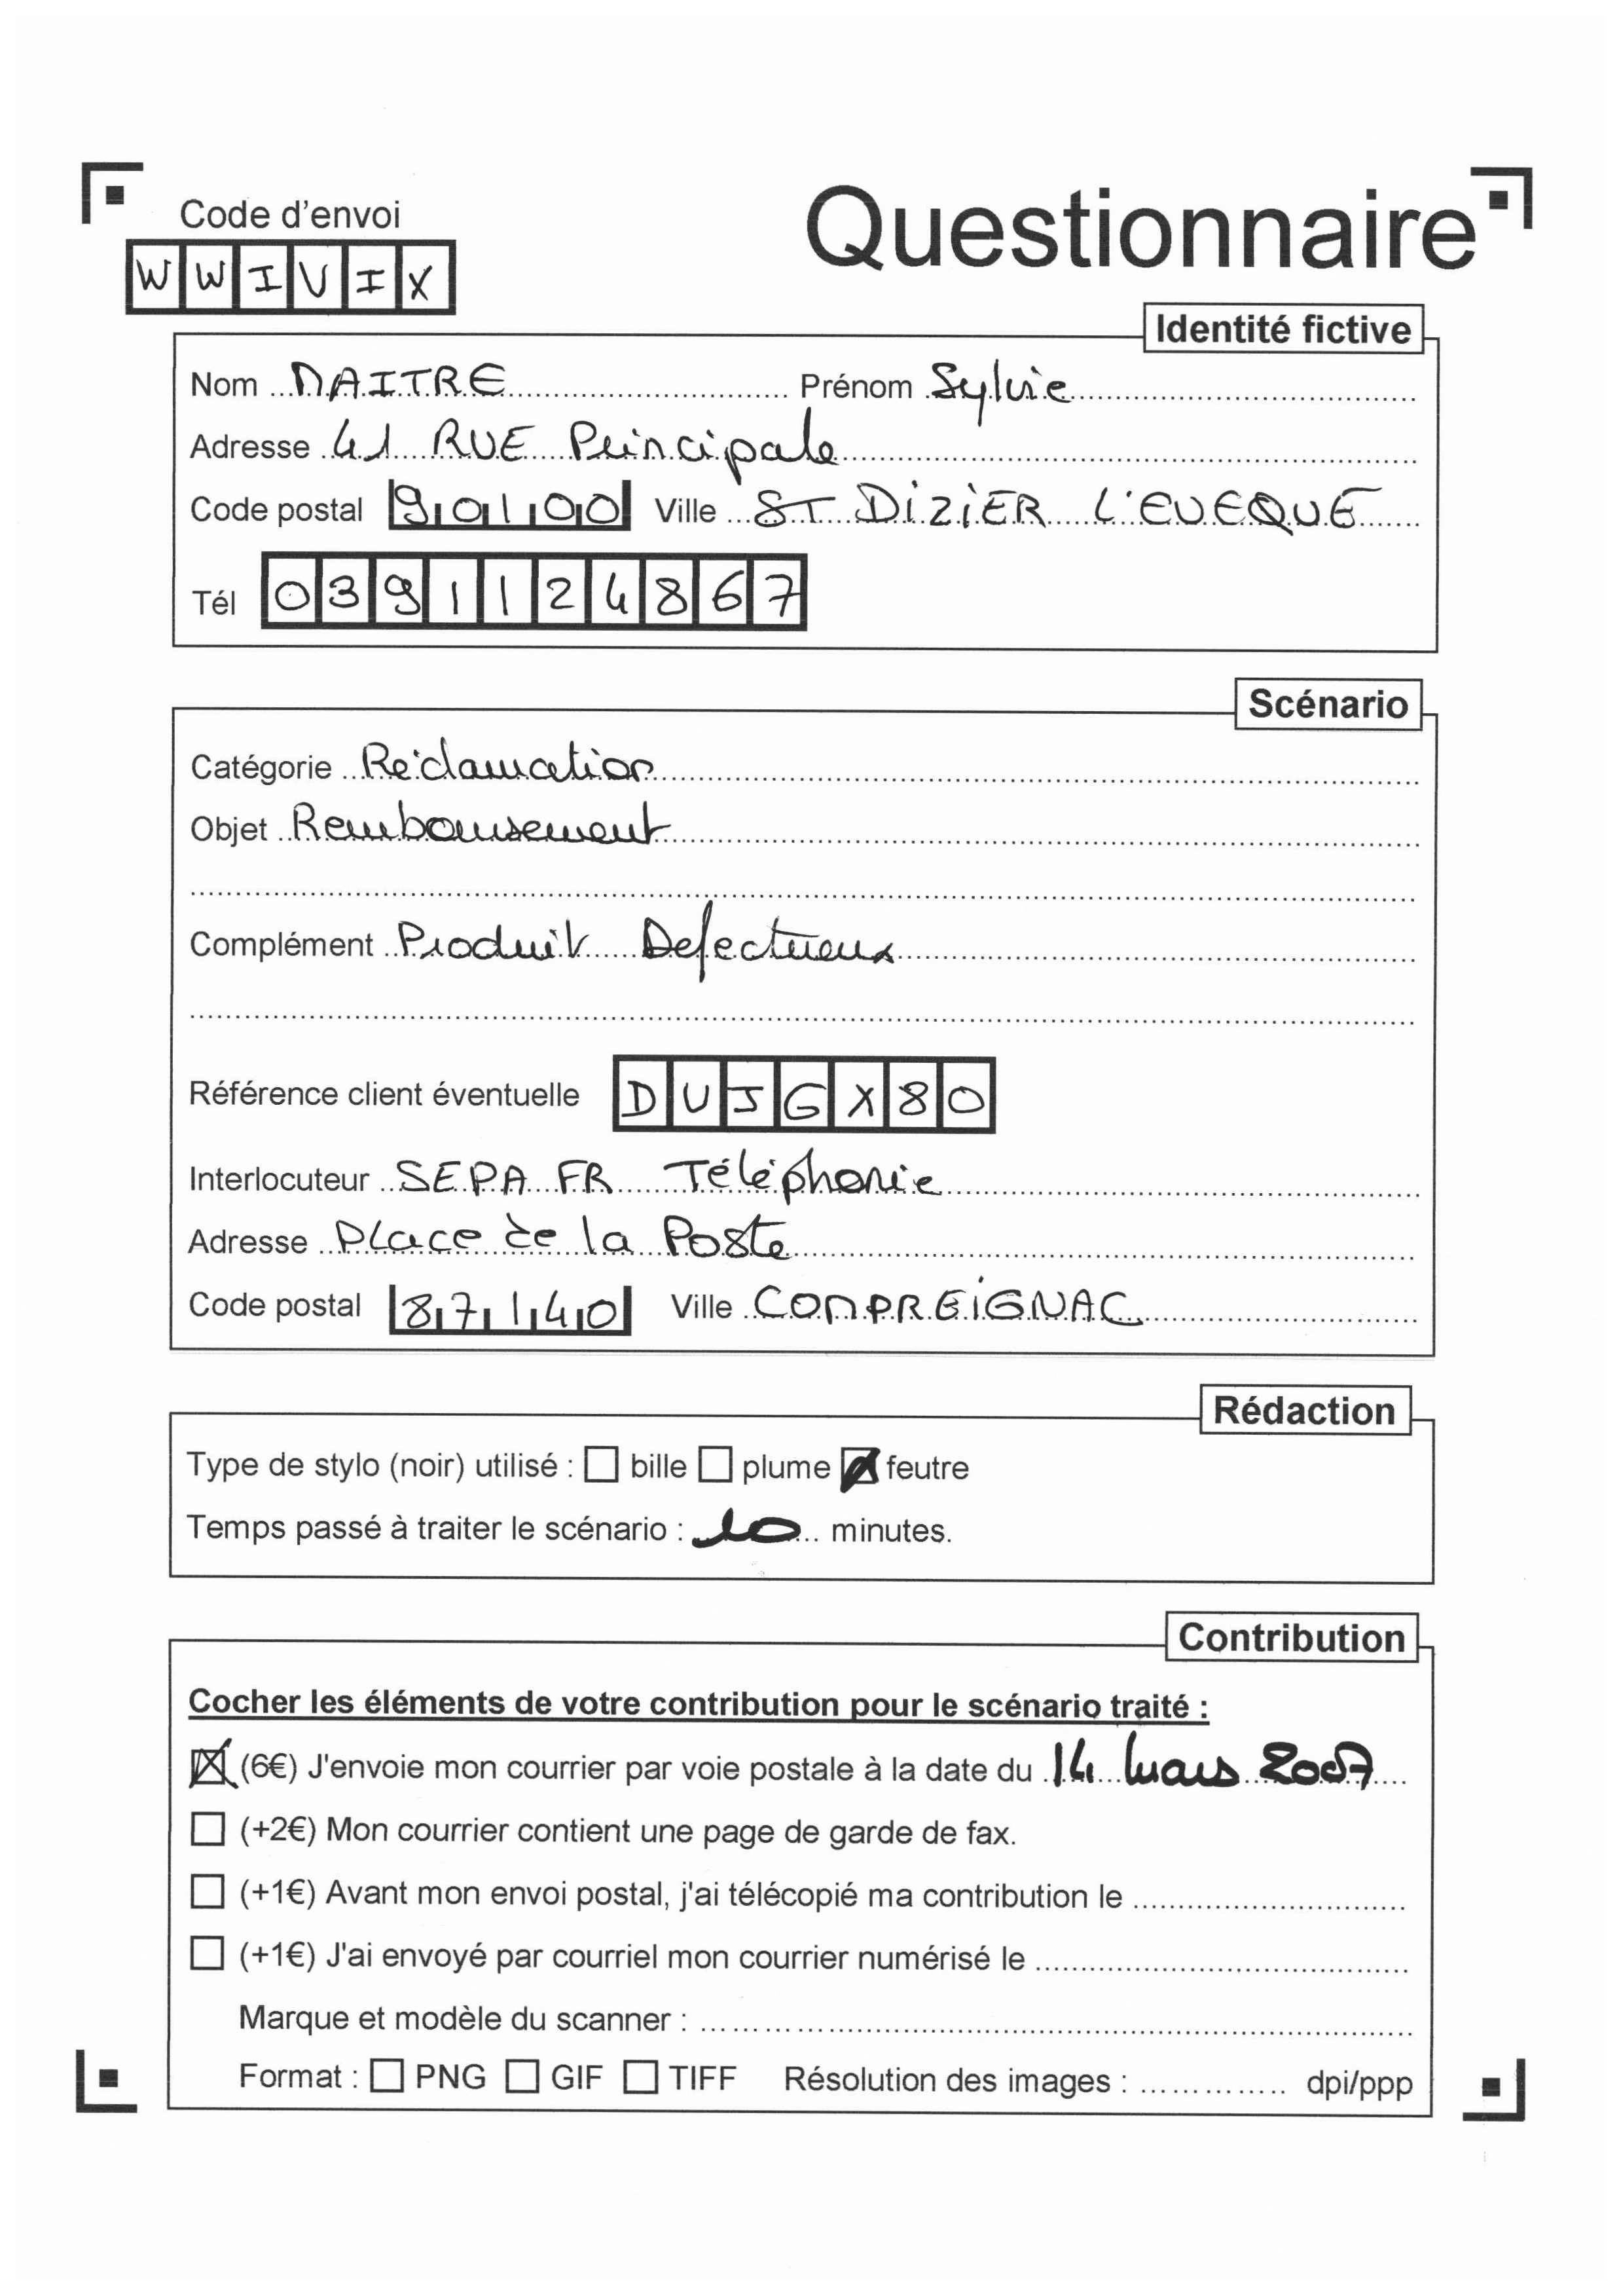 Code d'envoi
Questionnaire
WWIVIX
Identité fictive
Nom MAITRE Prénom Sylvie
Adresse 41 RUE Principale
Code postal 90100 Ville ST DiZiER L'EVEQUE
Tél 0391124867
Scénario
Catégorie Réclamation
Objet Remboursement
Complément Produit Defectueux
Référence client éventuelle DUJGX80
Interlocuteur SEPA FR Téléphonie
Adresse Place de la Poste
Code postal 87140 Ville COMPREiGNAC
Rédaction
Type de stylo (noir) utilisé : ☐ bille ☐ plume ☒ feutre
Temps passé à traiter le scénario : 10 minutes.
Contribution
Cocher les éléments de votre contribution pour le scénario traité :
☒ (6€) J'envoie mon courrier par voie postale à la date du 14 mars 2007
☐ (+2€) Mon courrier contient une page de garde de fax.
☐ (+1€) Avant mon envoi postal, j'ai télécopié ma contribution le
☐ (+1€) J'ai envoyé par courriel mon courrier numérisé le
Marque et modèle du scanner :
Format : ☐ PNG ☐ GIF ☐ TIFF Résolution des images : dpi/ppp